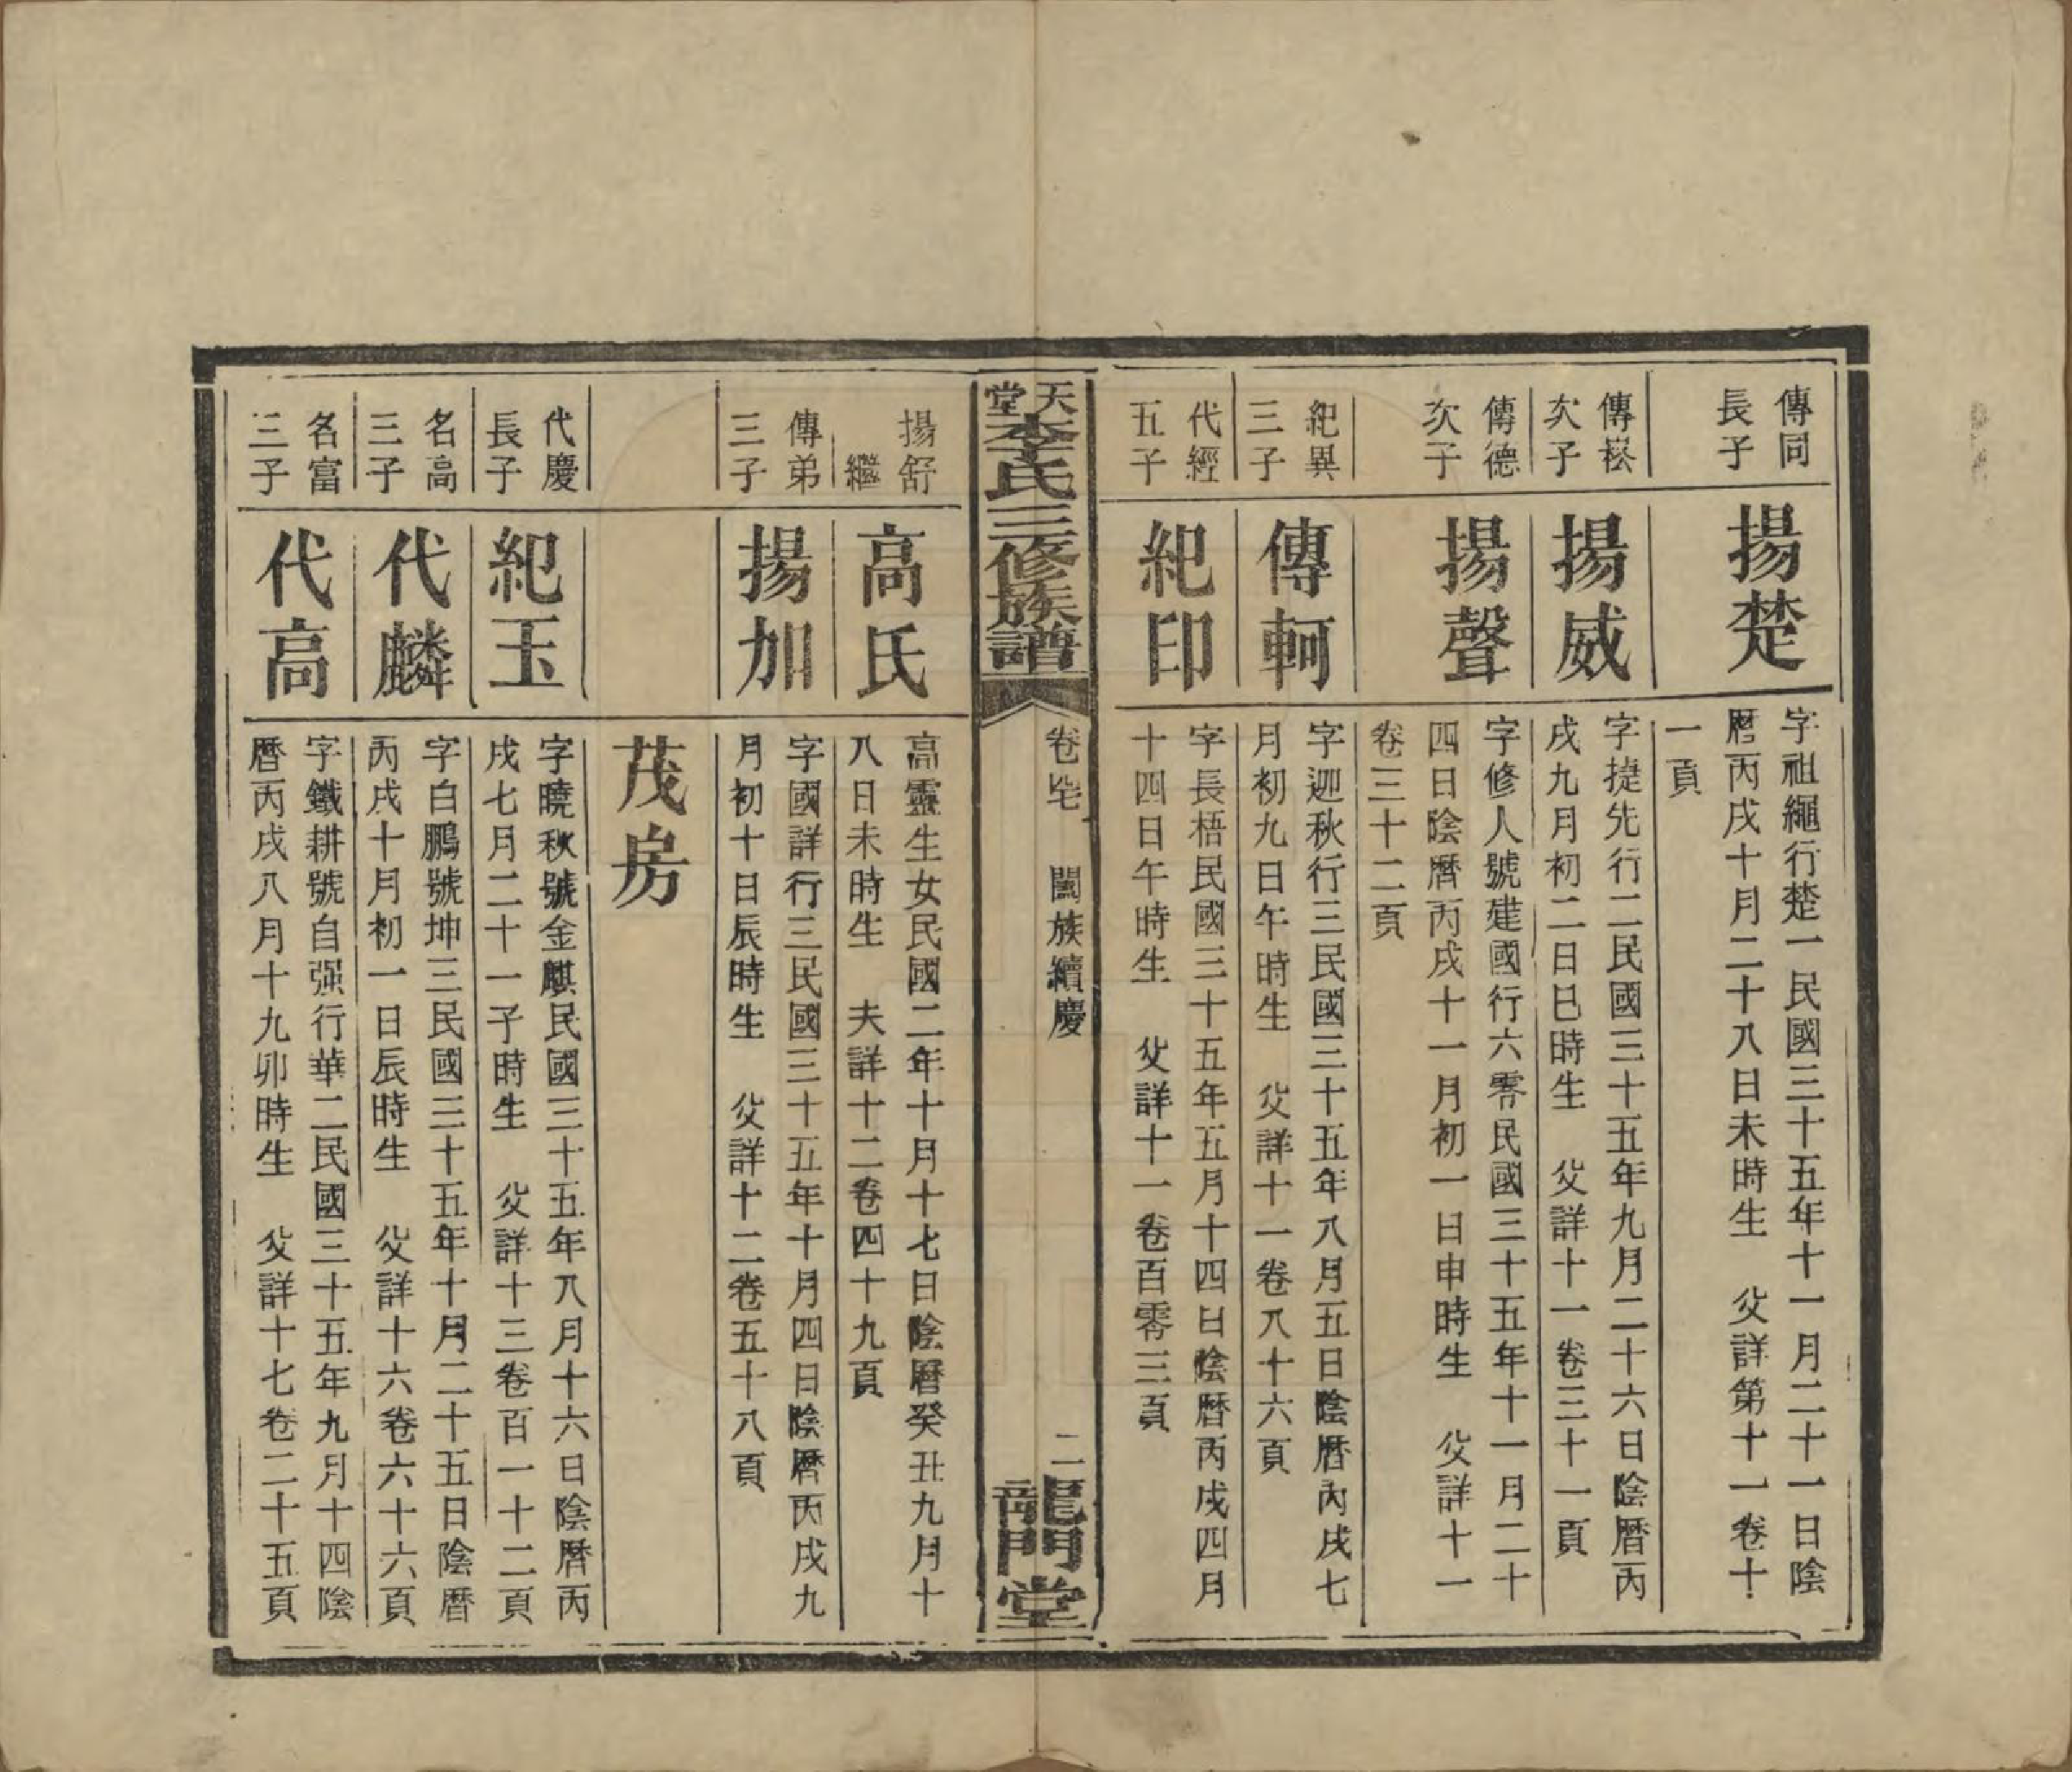 傳同
長子
揚楚
字祖繩行楚一民國三十五年十一月二十一日陰
曆丙戌十月二十八日未時生　父詳第十一卷十
一頁
傳崧
次子
揚威
字捷先行二民國三十五年九月二十六日陰曆丙
戌九月初二日巳時生　父詳十一卷三十一頁
傳德
次子
揚聲
字修人號建國行六零民國三十五年十一月二十
四日陰曆丙戌十一月初一日申時生　父詳十一
卷三十二頁
紀異
三子
傳軻
字迎秋行三民國三十五年八月五日陰曆丙戌七
月初九日午時生　父詳十一卷八十六頁
代經
五子
紀印
字長梧民國三十五年五月十四日陰曆丙戌四月
十四日午時生　父詳十一卷百零三頁
天堂李氏三修族譜
卷　闔族續慶
二
龍門堂
揚舒
繼
高氏
高靈生女民國二年十月十七日陰曆癸丑九月十
八日未時生　夫詳十二卷四十九頁
傳弟
三子
揚加
字國詳行三民國三十五年十月四日陰曆丙戌九
月初十日辰時生　父詳十二卷五十八頁
茂房
代慶
長子
紀玉
字曉秋號金麒民國三十五年八月十六日陰曆丙
戌七月二十一子時生　父詳十三卷百一十二頁
名高
三子
代麟
字白鵬號坤三民國三十五年十月二十五日陰曆
丙戌十月初一日辰時生　父詳十六卷六十六頁
名富
三子
代高
字鐵耕號自强行華二民國三十五年九月十四陰
曆丙戌八月十九卯時生　父詳十七卷二十五頁